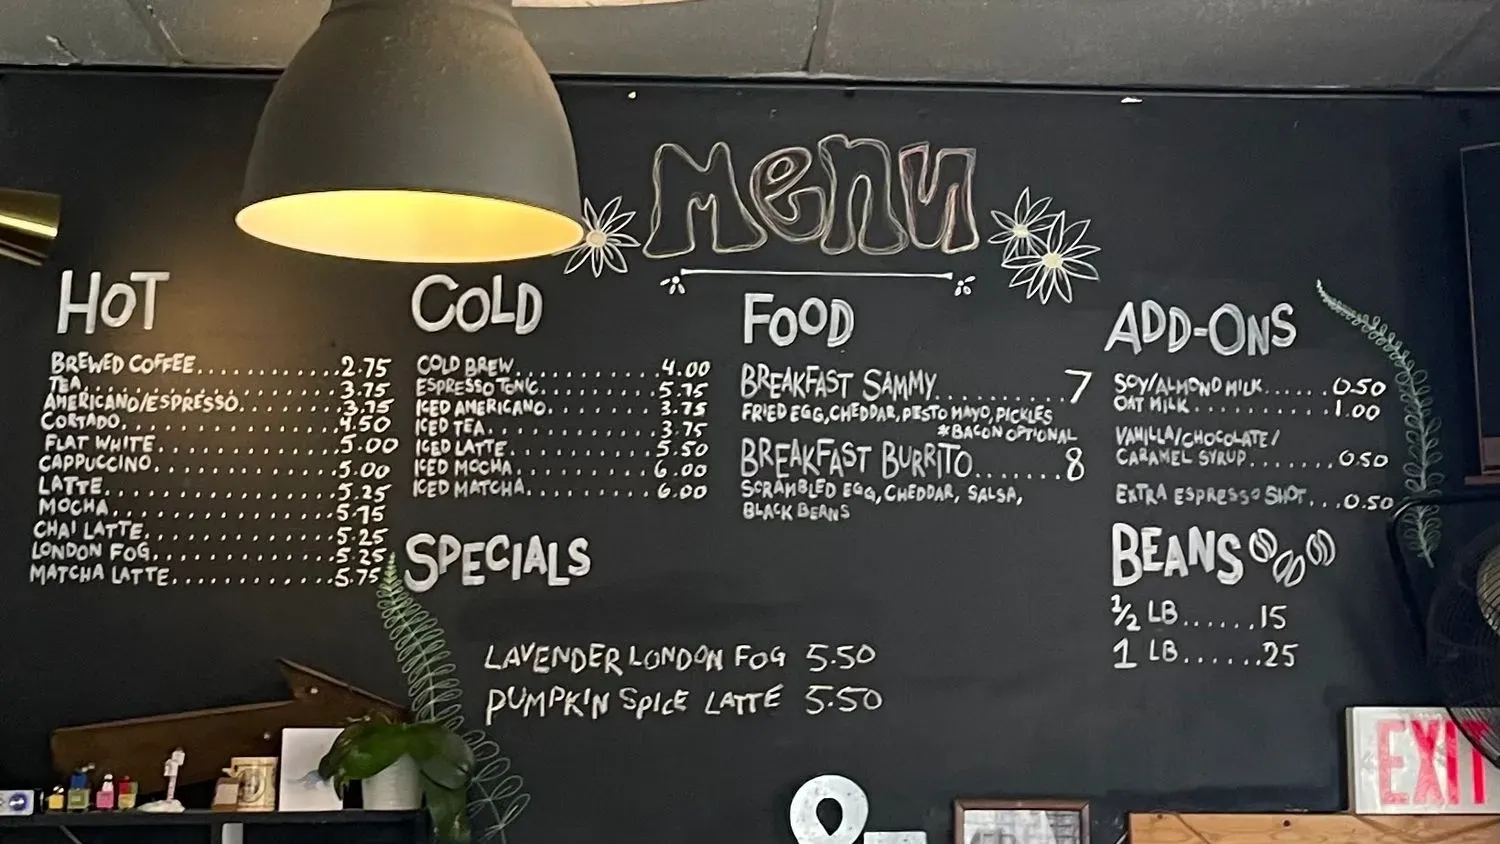 Menu
HOT
BREWED COFFEE............2.75
TEA....................3.75
AMERICANO/ESPRESSO........3.75
CORTADO.................4.50
FLAT WHITE...............5.00
CAPPUCCINO..............5.00
LATTE..................5.25
MOCHA.................5.75
CHAI LATTE..............5.25
LONDON FOG.............5.25
MATCHA LATTE............5.75
COLD
COLD BREW............4.00
ESPRESSO TONIC.........5.75
ICED AMERICANO........3.75
ICED TEA.............3.75
ICED LATTE...........5.50
ICED MOCHA...........6.00
ICED MATCHA..........6.00
SPECIALS
LAVENDER LONDON FOG 5.50
PUMPKIN SPICE LATTE 5.50
FOOD
BREAKFAST SAMMY..........7
FRIED EGG, CHEDDAR, PESTO MAYO, PICKLES
*BACON OPTIONAL
BREAKFAST BURRITO.......8
SCRAMBLED EGG, CHEDDAR, SALSA,
BLACK BEANS
ADD-ONS
SOY/ALMOND MILK......0.50
OAT MILK............1.00
VANILLA/CHOCOLATE/
CARAMEL SYRUP........0.50
EXTRA ESPRESSO SHOT...0.50
BEANS
1/2 LB......15
1 LB......25
EXIT